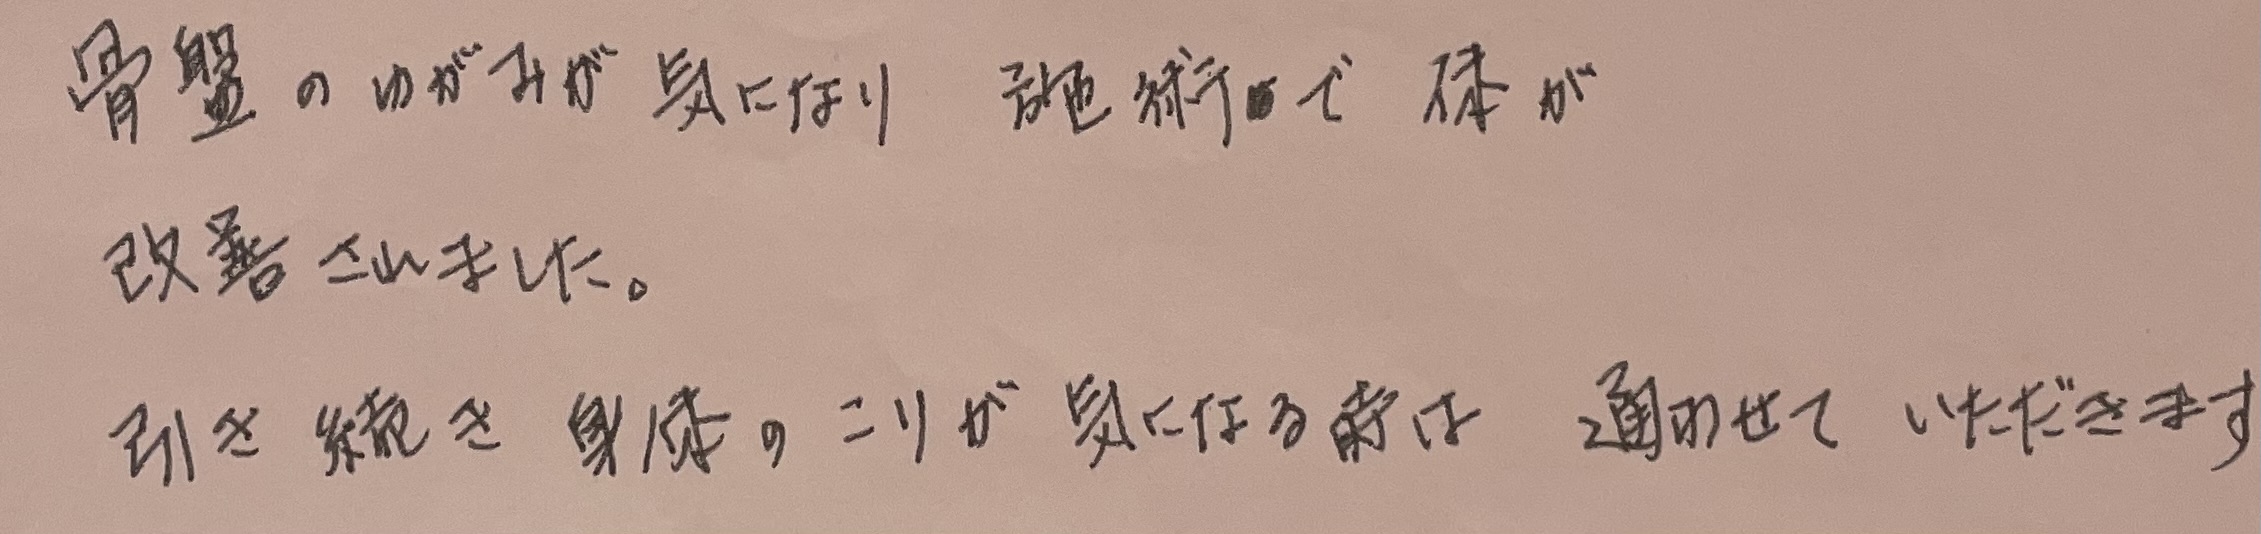 骨盤のゆがみが気になり 施術で 体が
改善されました。
引き続き 身体のこりが 気になる時は 通わせて いただきます